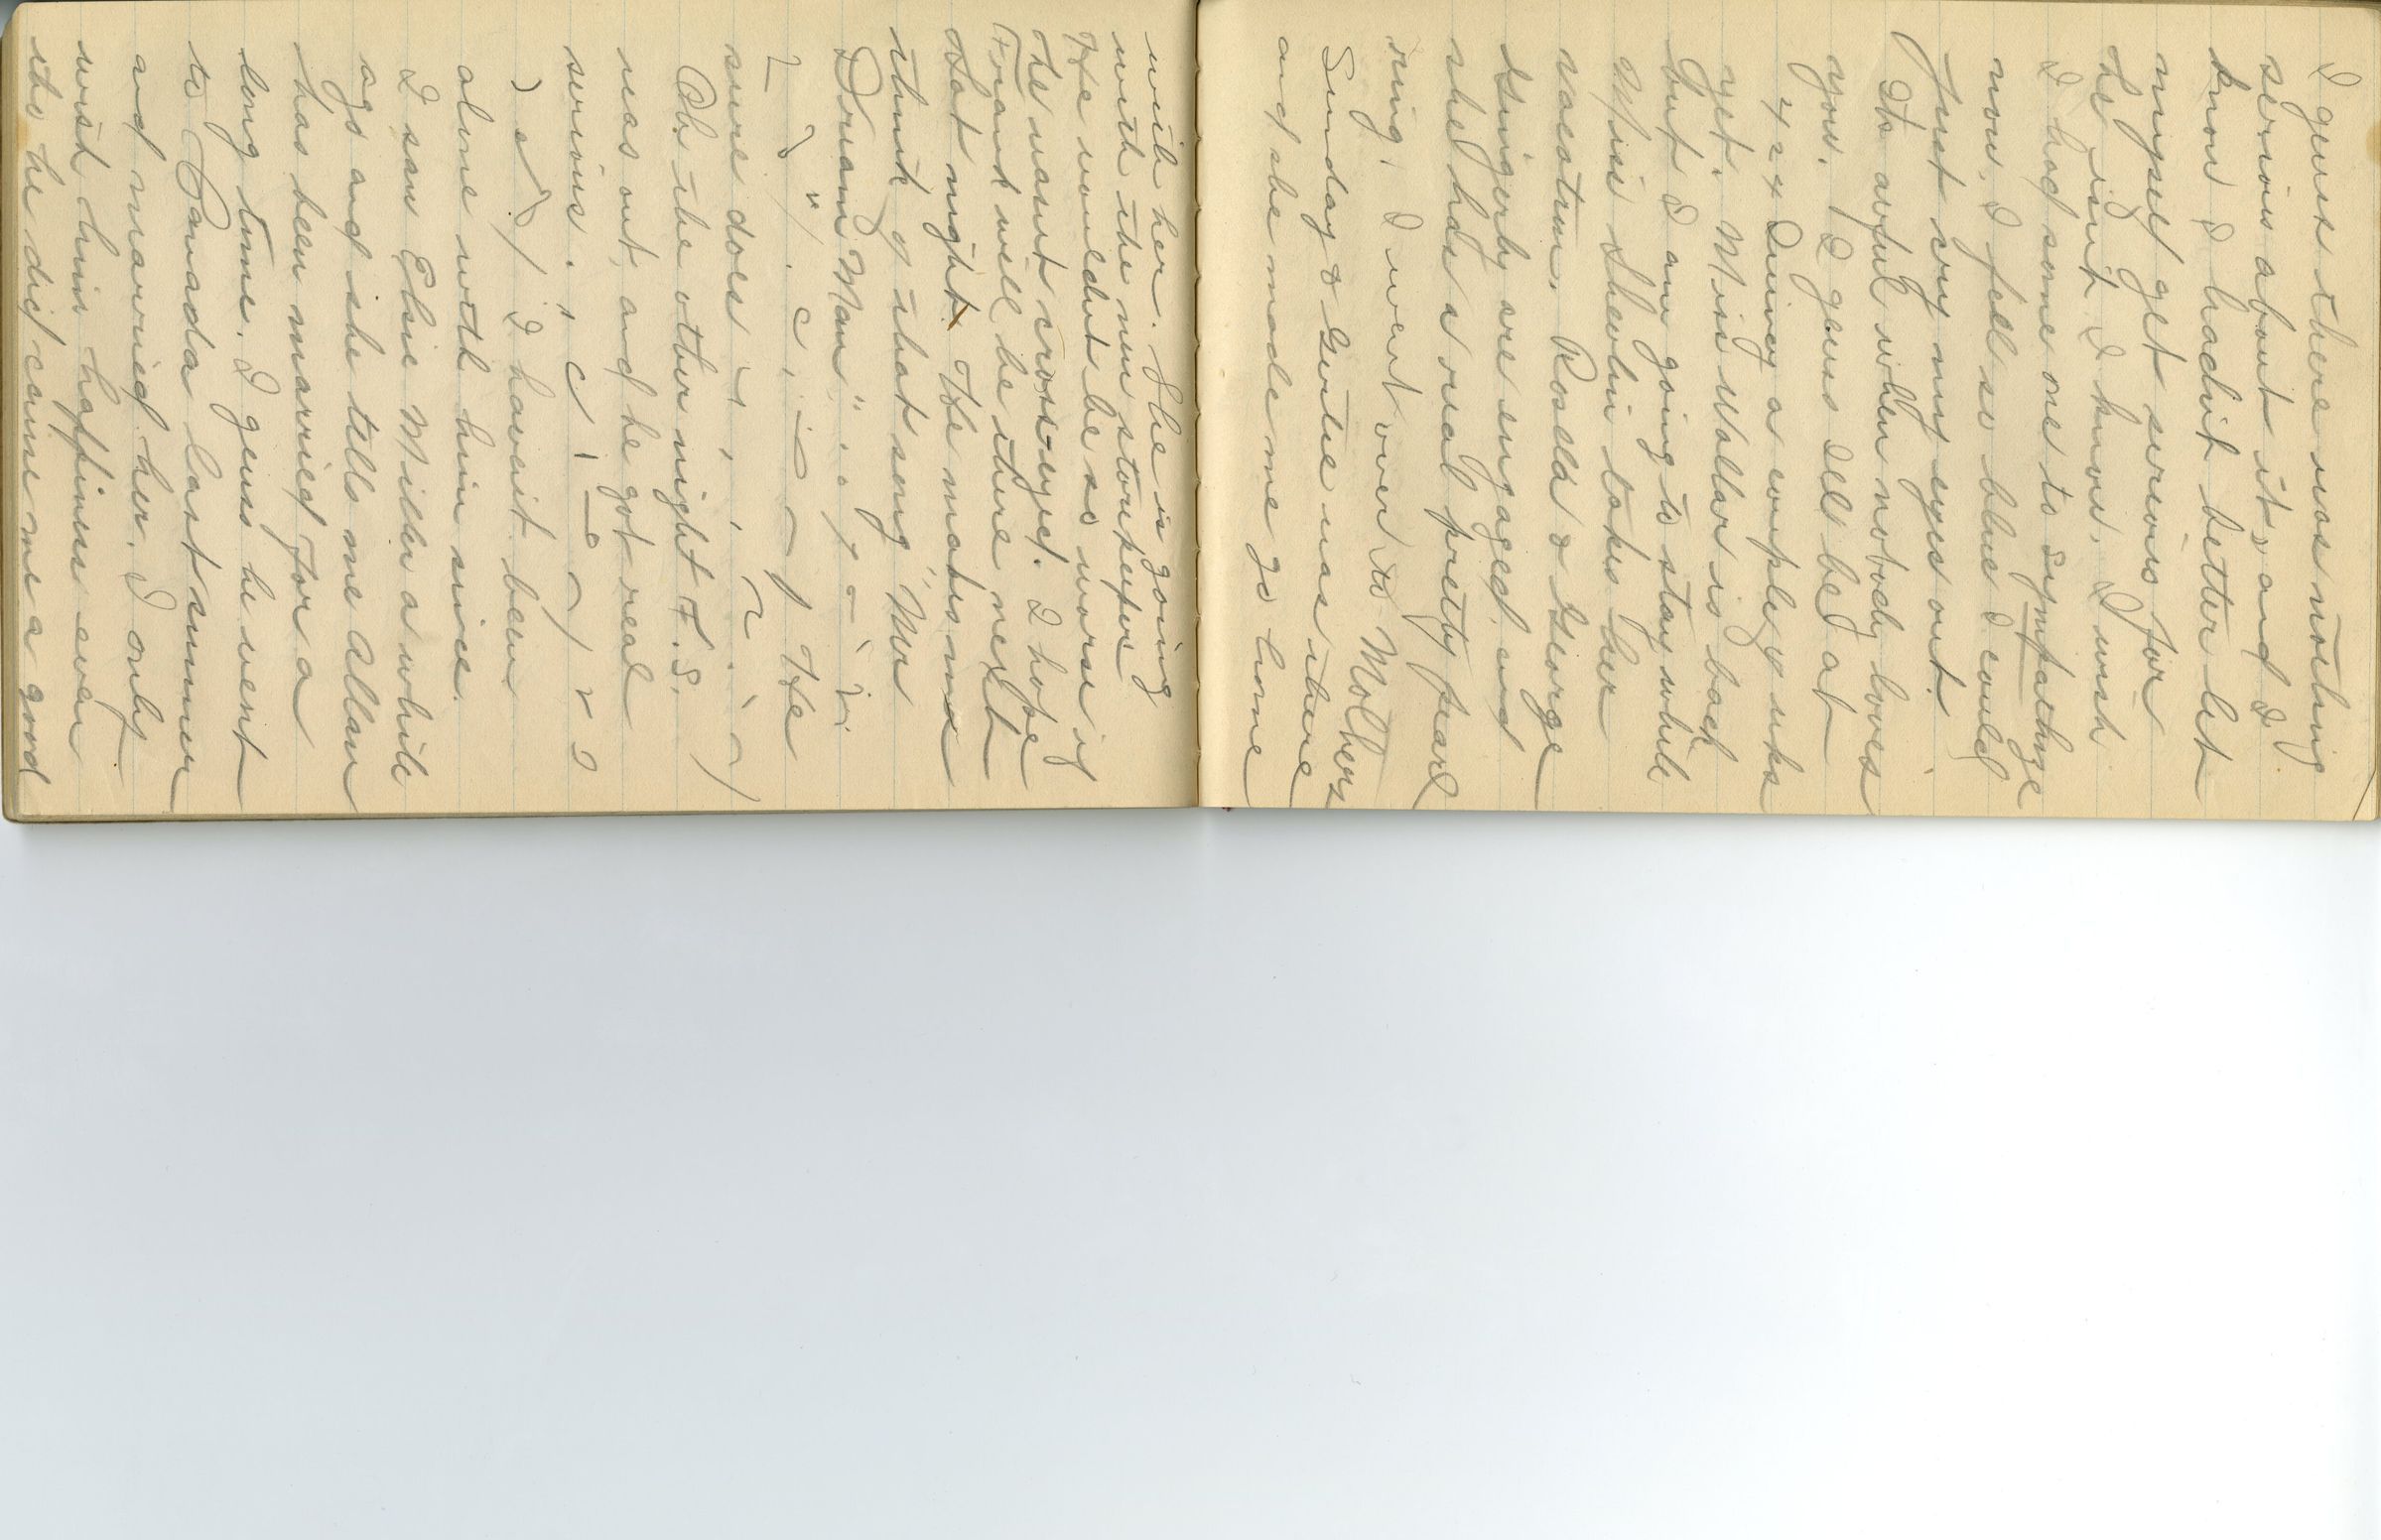 I guess there was nothing
serious about it, and I
know I hadn't better let
myself get serious for
he isn't I know. I wish
I had some one to sympathize
now, I feel so blue I could
just cry my eyes out.
Its awful when nobody loves
you. I guess Ill be at
Quincy a couple of wks
yet. Miss Wollar is back
but I am going to stay while
Miss Shevlin takes her
vacation. Rosella & George
Gingerly are engaged and
she has a real pretty pearl
ring. I went over to Molhers
Sunday & Gertie was there
and she made me go home
with her. She is going
with the nun storekeeper
He wouldn't be so worse if
he wasn't cross-eyed. I hope
Frank will be there next
Sat night. He makes me
think of that song, "My
Dream Man"
He
sure does
Oh the other night F.S.
was out, and he got real
serious.
I haven't been
alone with him since.
I saw Elsie Miller a while
ago and she tells me Allan
has been married for a
long time. I guess he went
to Canada last summer
and married her. I only
wish him happiness even
tho he did cause me a good